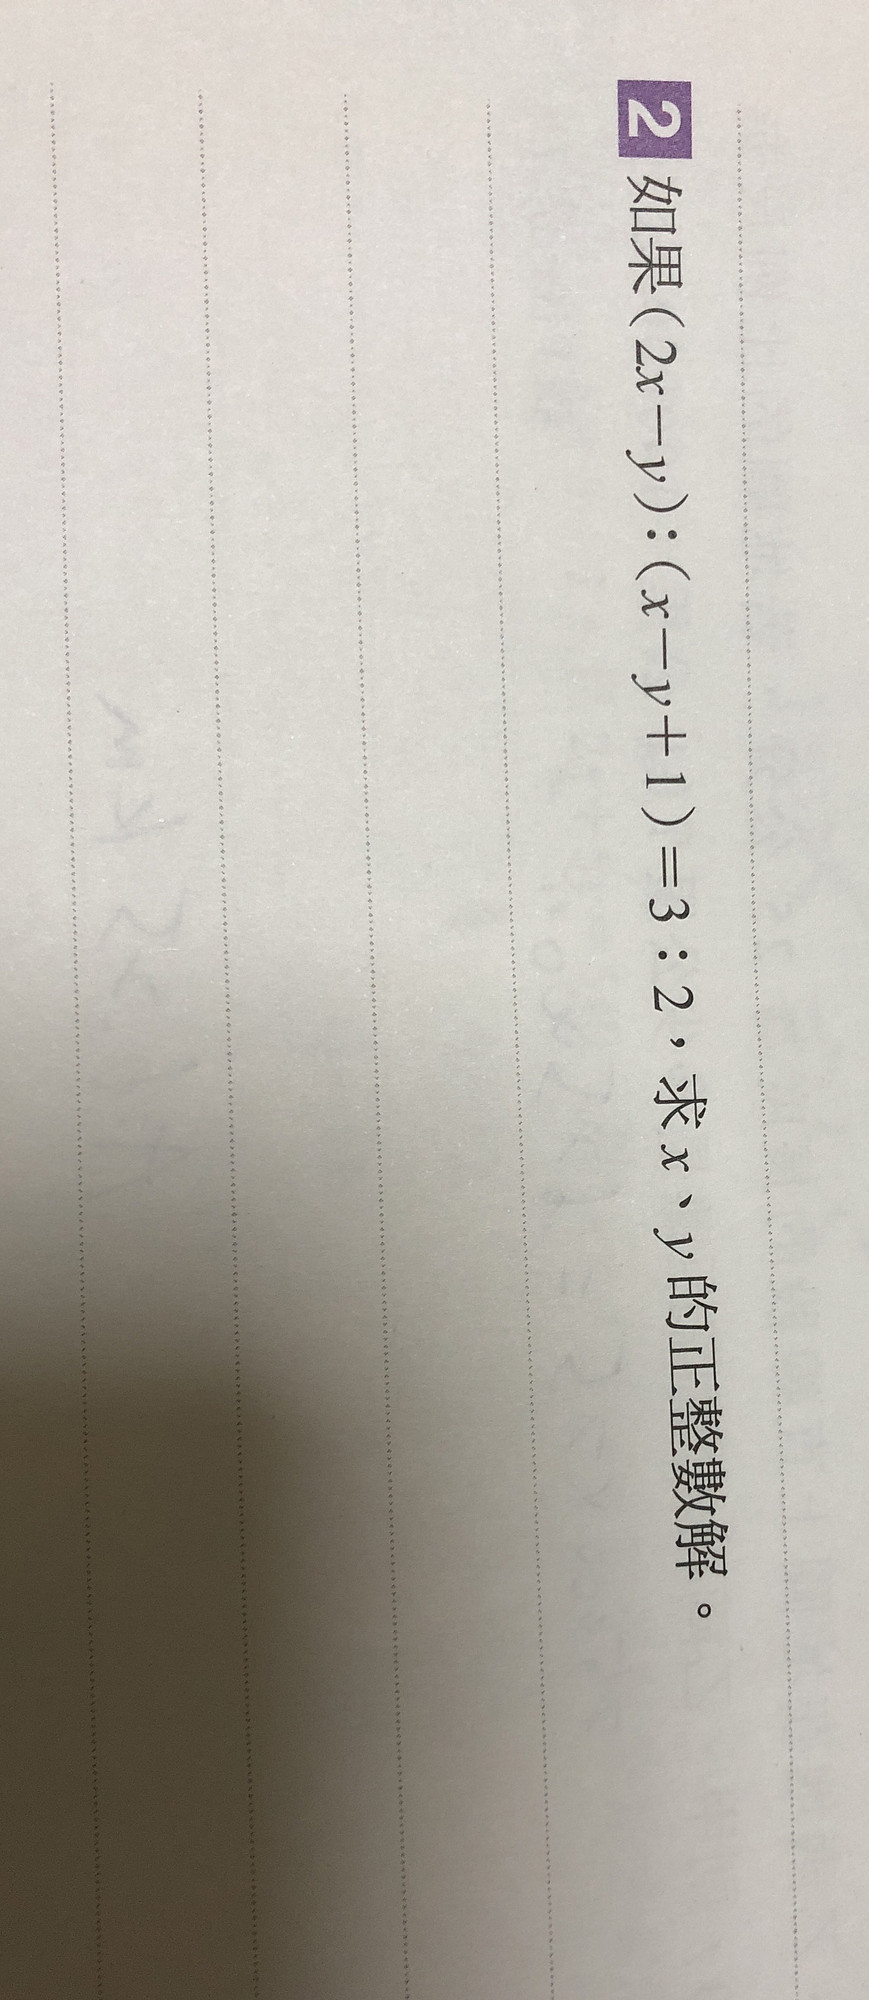 2 如果(2x-y):(x-y+1)=3:2，求x、y的正整數解。